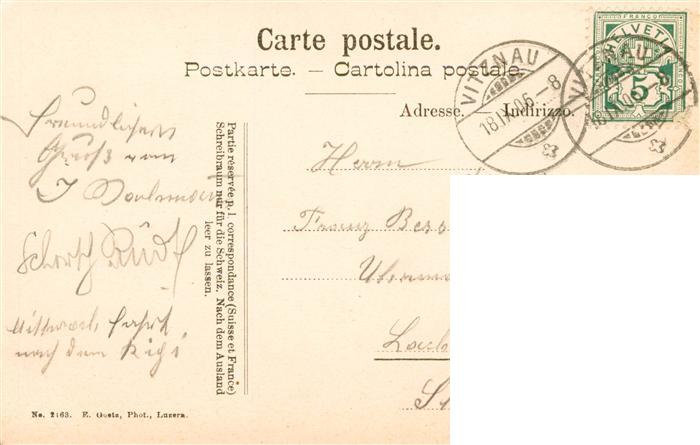 Carte postale.
Postkarte. — Cartolina postale.
Adresse. Indirizzo.
FRANCO
HELVETIA
5
VITZNAU
18.IX.06.-8
VITZNAU
18.IX.06.-8
Freundlichen
Gruß von
J
Schorsch Rüdf
Mittwoch fahrt
nach dem Rigi
Partie réservée p. l. correspondance (Suisse et France)
Schreibraum nur für die Schweiz. Nach dem Ausland
leer zu lassen.
Herrn
Franz
No. 2163. E. Goetz, Phot., Luzern.